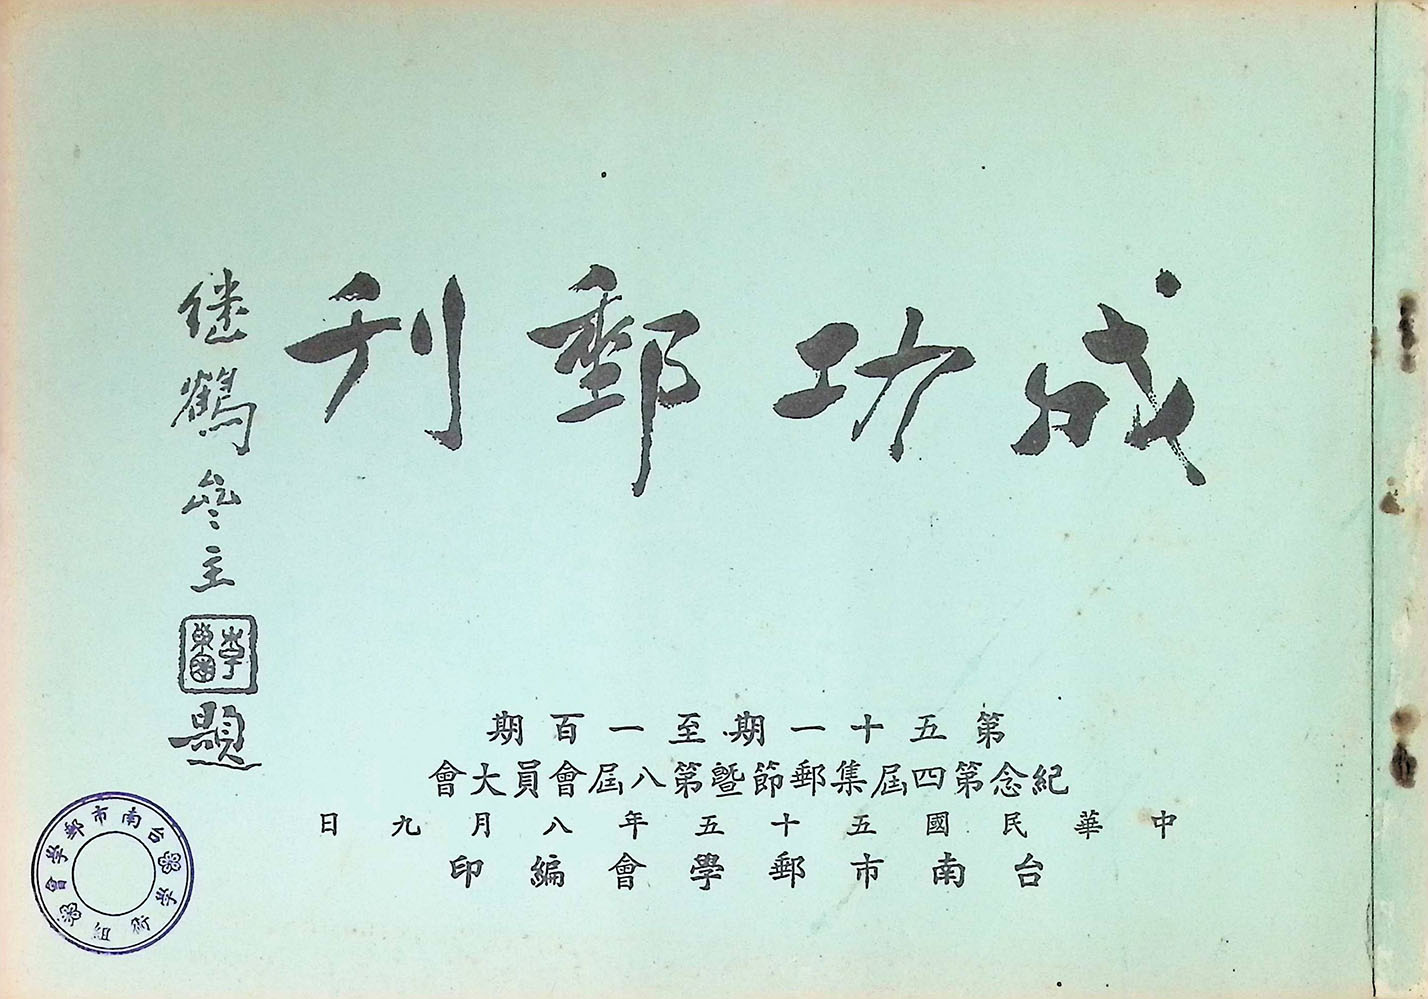 成功郵刊
继鶴主
李東園
題
第五十一期至一百期
紀念第四屆集郵節暨第八屆會員大會
中華民國五十五年八月九日
台南市郵學會編印
台南市郵学會
学術組